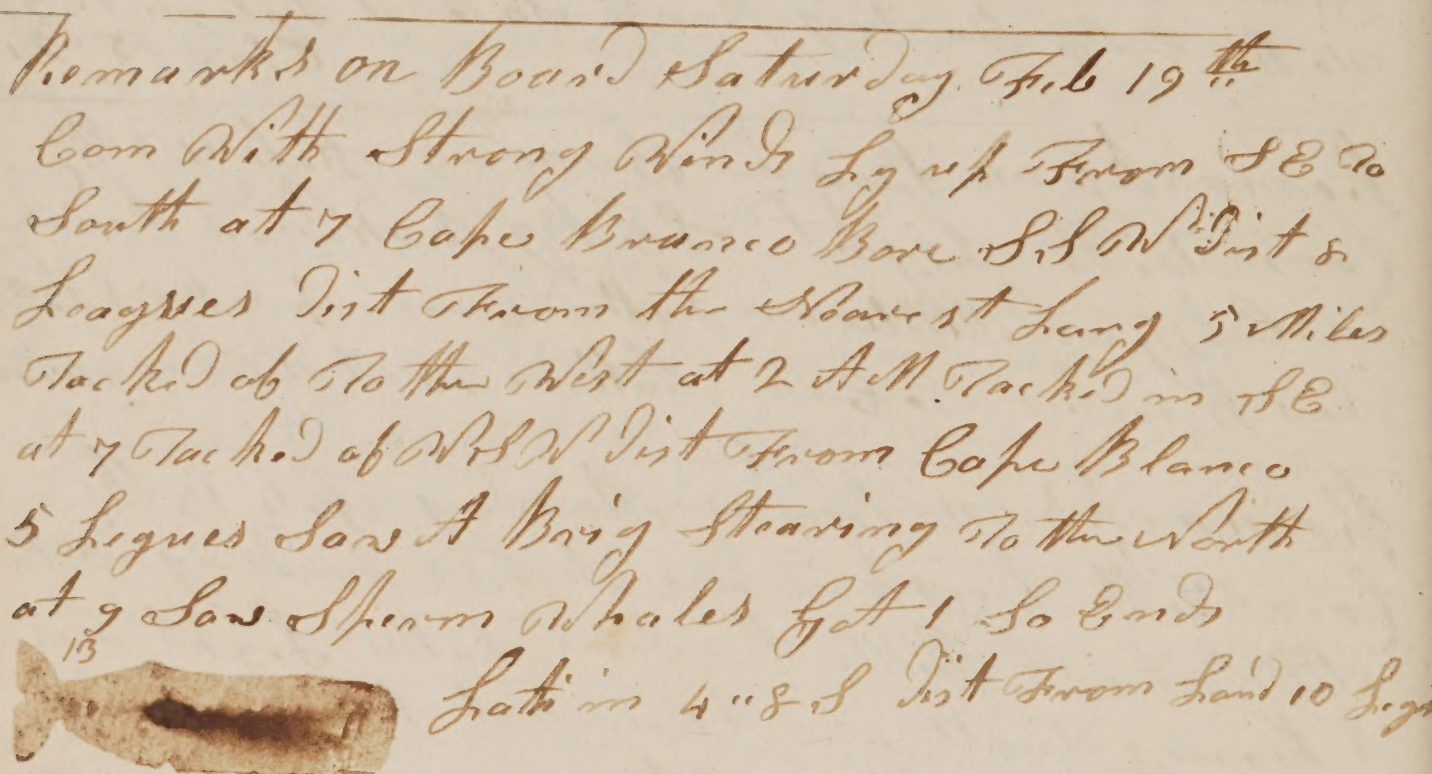 Remarks on Board Saturday Feb 19th
Com With Strong Winds Ly up From S E To
South at 7 Cape Branco Bore S S W Dist 8
Leagues Dist From the Nearest Lang 5 Miles
Tacked of To the West at 2 A M Tacked in S E
at 7 Tacked of W S W Dist From Cape Blanco
5 Legues Saw A Brig Stearing To the North
at 9 Saw Sperm Whales Got 1 So Ends
13
Lati in 4 " 8 S Dist From Land 10 Legs